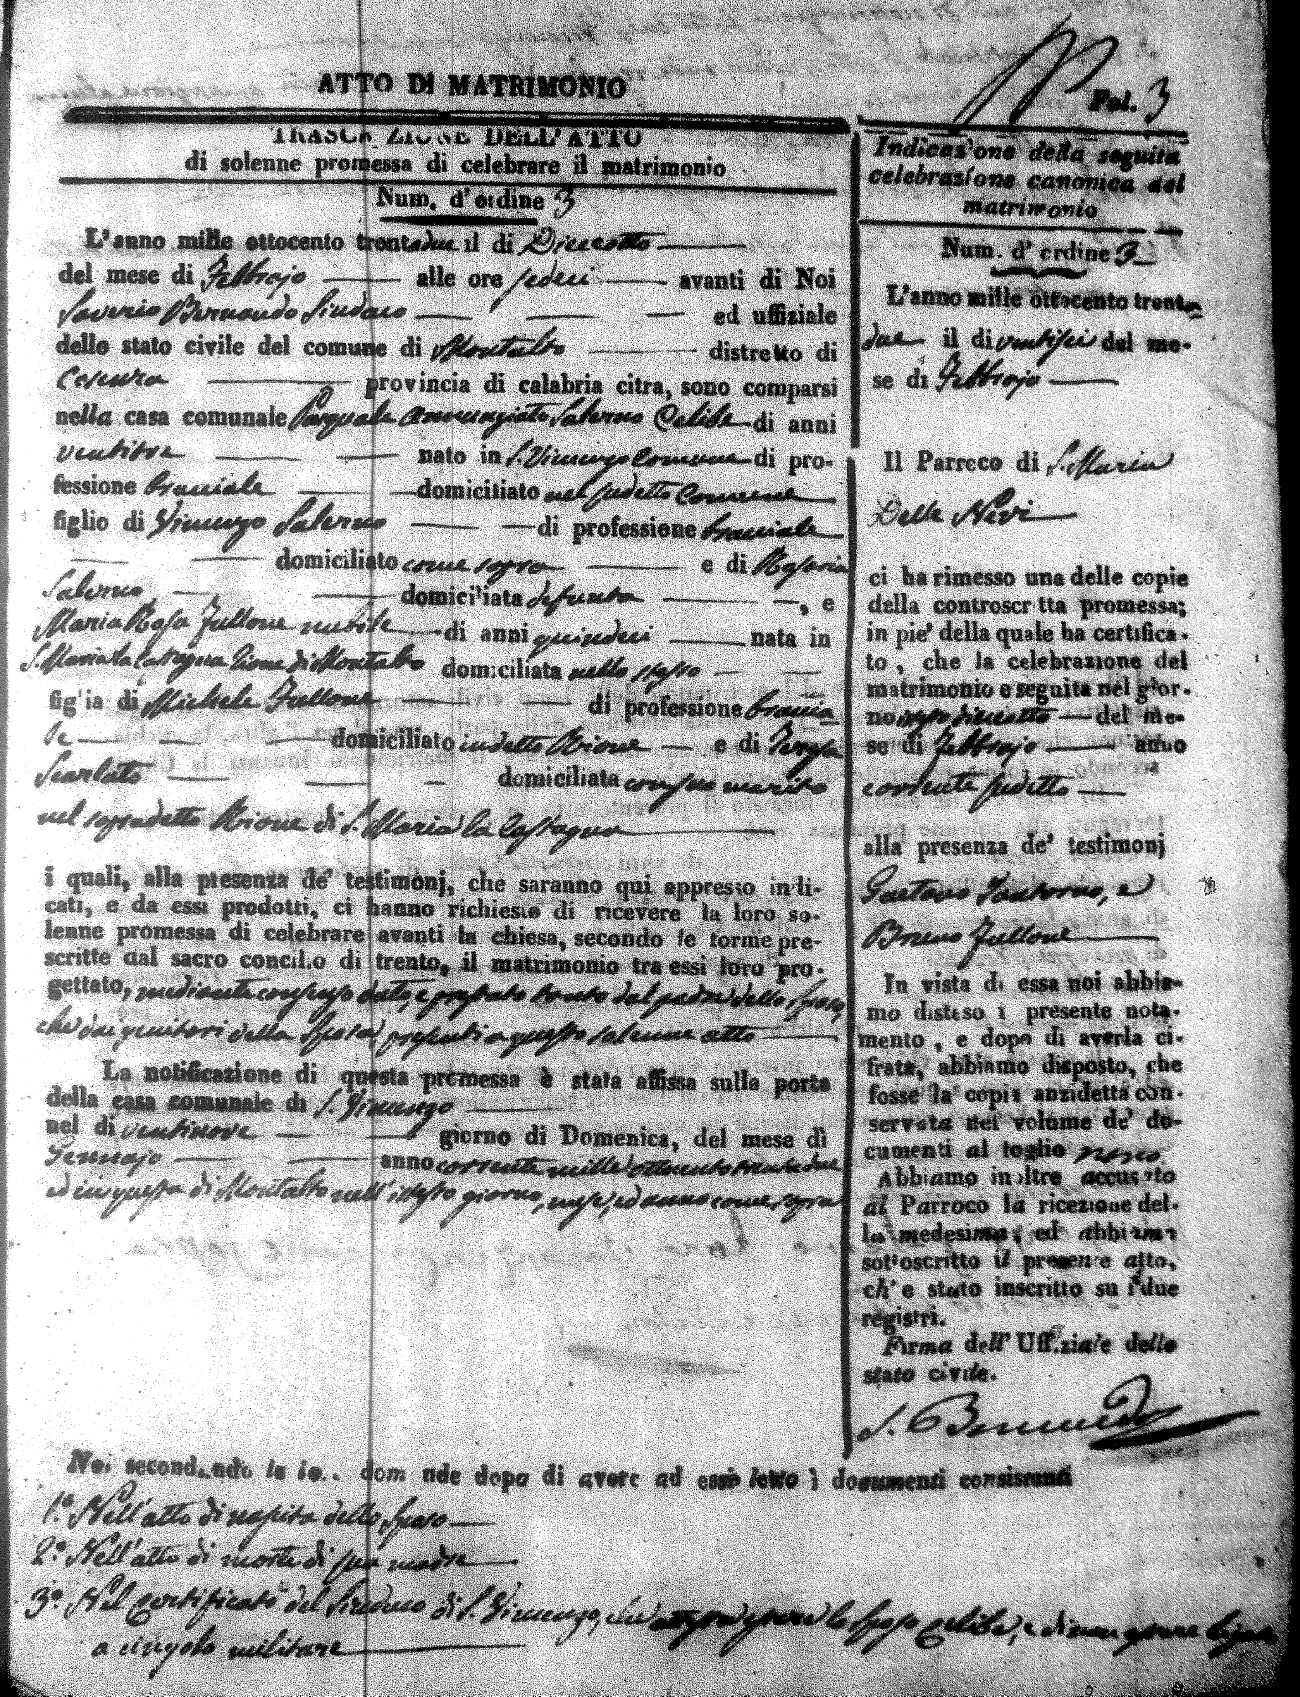 ATTO DI MATRIMONIO
Fol. 3
TRASCRIZIONE DELL'ATTO
di solenne promessa di celebrare il matrimonio
Num. d'ordine 3
L'anno mille ottocento trentadue il di Dieceotto
del mese di Febbrajo alle ore sedeci avanti di Noi
Saverio Bernaudo Sindaco ed uffiziale
dello stato civile del comune di Montalto distretto di
Cosenza provincia di calabria citra, sono comparsi
nella casa comunale Pasquale Annunziato Salerno Celibe di anni
ventitre nato in S. Vincenzo Comune di pro-
fessione bracciale domiciliato nel sudetto Comune
figlio di Vincenzo Salerno di professione bracciale
domiciliato come sopra e di Rosaria
Salerno domiciliata defunta , e
Maria Rosa Fullone nubile di anni quindeci nata in
S. Maria la Castagna Rione di Montalto domiciliata nello stesso
figlia di Michele Fullone di professione braccia
le domiciliato in detto Rione e di Teresa
Scarlato domiciliata con suo marito
nel sopradetto Rione di S. Maria la Castagna
i quali, alla presenza de' testimonj, che saranno qui appresso indi-
cati, e da essi prodotti, ci hanno richiesto di ricevere la loro so-
lenne promessa di celebrare avanti la chiesa, secondo le forme pre-
scritte dal sacro concilio di trento, il matrimonio tra essi loro pro-
gettato, mediante consenso dato, e prestato tanto dal padre dello sposo,
che dai genitori della sposa presenti a questo solenne atto
La notificazione di questa promessa è stata affissa sulla porta
della casa comunale di S. Vincenzo
nel di ventinove giorno di Domenica, del mese di
Gennajo anno corrente mille ottocento trentadue
ed in questa di Montalto nell'istesso giorno, mese, ed anno come sopra
Indicazione della seguita
celebrazione canonica del
matrimonio
Num. d' ordine 3
L'anno mille ottocento trenta
due il di ventisei del me-
se di Febbrajo
Il Parroco di S. Maria
Delle Nevi
ci ha rimesso una delle copie
della controscritta promessa;
in pie' della quale ha certifica-
to, che la celebrazione del
matrimonio e seguita nel gior-
no dieceotto del me-
se di Febbrajo anno
corrente sudetto
alla presenza de' testimonj
Gaetano e
Bruno Fullone
In vista di essa noi abbia-
mo disteso i presente nota-
mento, e dopo di averla ci-
frata, abbiamo disposto, che
fosse la copia anzidetta con-
servata nel volume de' do-
cumenti al foglio
Abbiamo inoltre accusato
al Parroco la ricezione del-
la medesima, ed abbiamo
sottoscritto il presente atto,
ch' e stato inscritto su i due
registri.
Firma dell' Uffiziale dello
stato civile.
S. Bernaudo
Noi secondando la lo.. domande dopo di avere ad essi letto i documenti consistenti
1.° Nell'atto di nascita dello sposo
2.° Nell'atto di morte di sua madre
3.° Nel certificato del Sindaco di S. Vincenzo, lo sposo celibe, e di non essere ligato
a cingolo militare